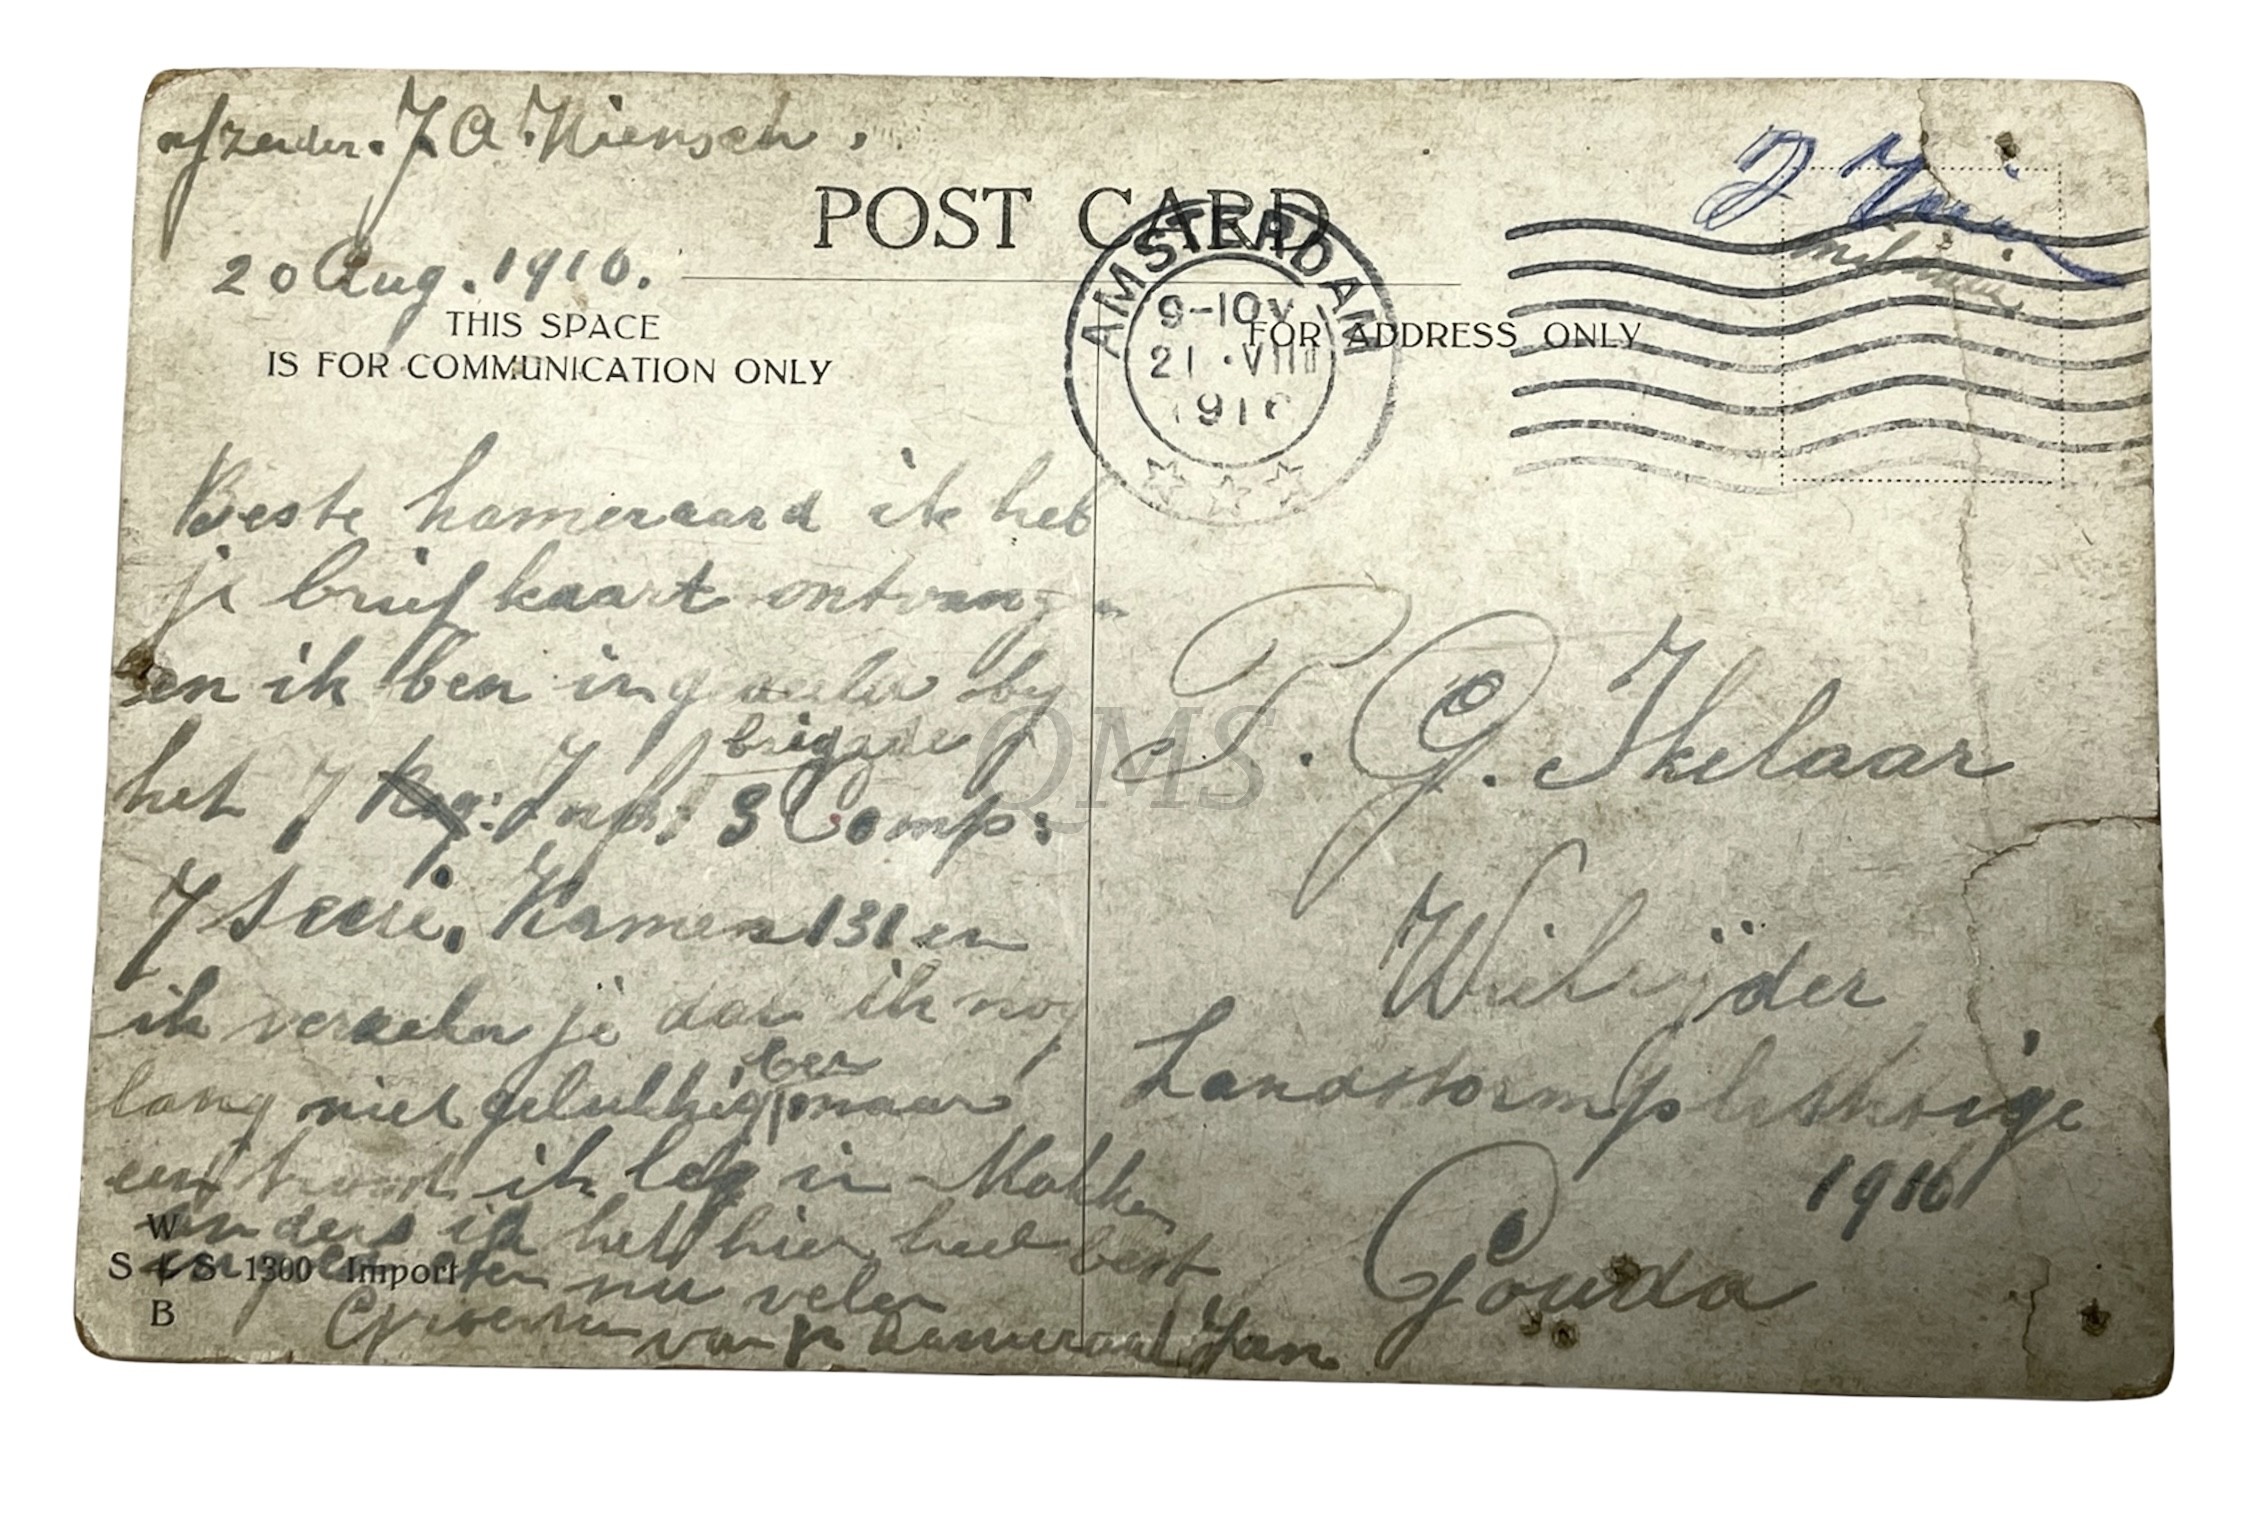 afzender. J A Hiensch.
20 Aug. 1916.
POST CARD
THIS SPACE
IS FOR COMMUNICATION ONLY
FOR ADDRESS ONLY
AMSTERDAM
9-10V
21.VIII
1916
militair
Beste kameraard ik heb
je briefkaart ontvangen
en ik ben ingedeelt by
brigade
het 7 Reg: Inf: 3 Comp:
7 serie. Kamer 131 en
ik verzeker je dat ik nog
ben
lang niet gelukkig maar
een troost ik leg in Mokken
anders is het hier heel best
en gegeten nu veler
Groeten van je kameraad Jan.
W
S & S 1300 Import
B
P. G. Ikelaar
Wielrijder
Landstormplichtige
1916
Gouda
QMS